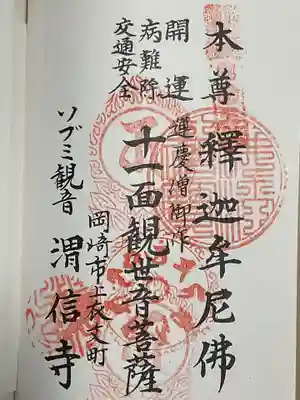 本尊釋迦牟尼佛
開運
病難除
交通安全
運慶澅御作
十一面観世音菩薩
岡﨑市上衣文町
ソブミ観音
渭信寺